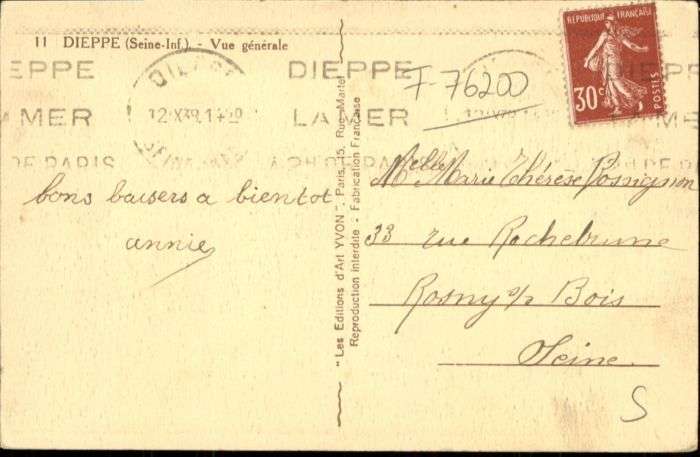 11 DIEPPE (Seine-Inf.) - Vue générale
DIEPPE
LA MER
DE PARIS
DIEPPE
12 X 38
DIEPPE
LA MER
F-76200
REPUBLIQUE FRANÇAISE
30c
POSTES
bons baisers a bientot
annie
"Les Editions d'Art YVON", Paris, 15, Rue Martel
Reproduction interdite - Fabrication Française
Melle Marie Thérèse
33 rue Rochebrune
Rosny s/s Bois
Seine.
S